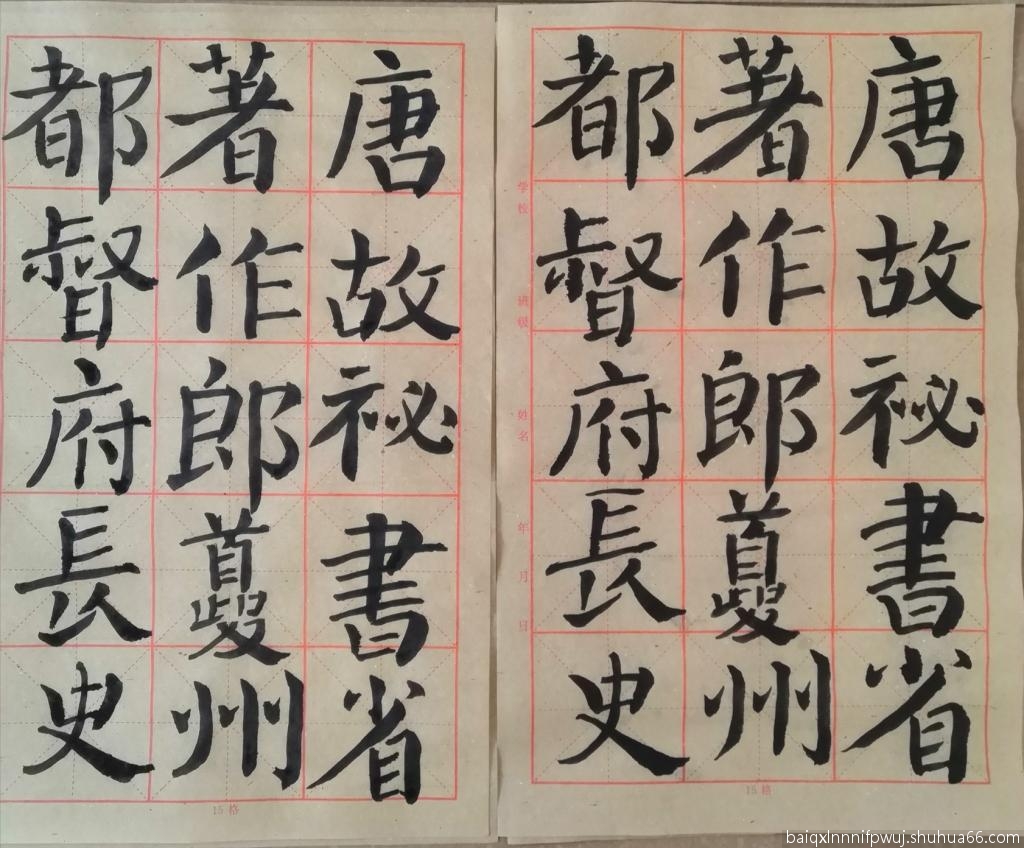 唐故祕書省
著作郎夔州
都督府長史
学校 班级 姓名 年 月 日
15格
唐故祕書省
著作郎夔州
都督府長史
15格
baiqxlnnnifpwuj.shuhua66.com